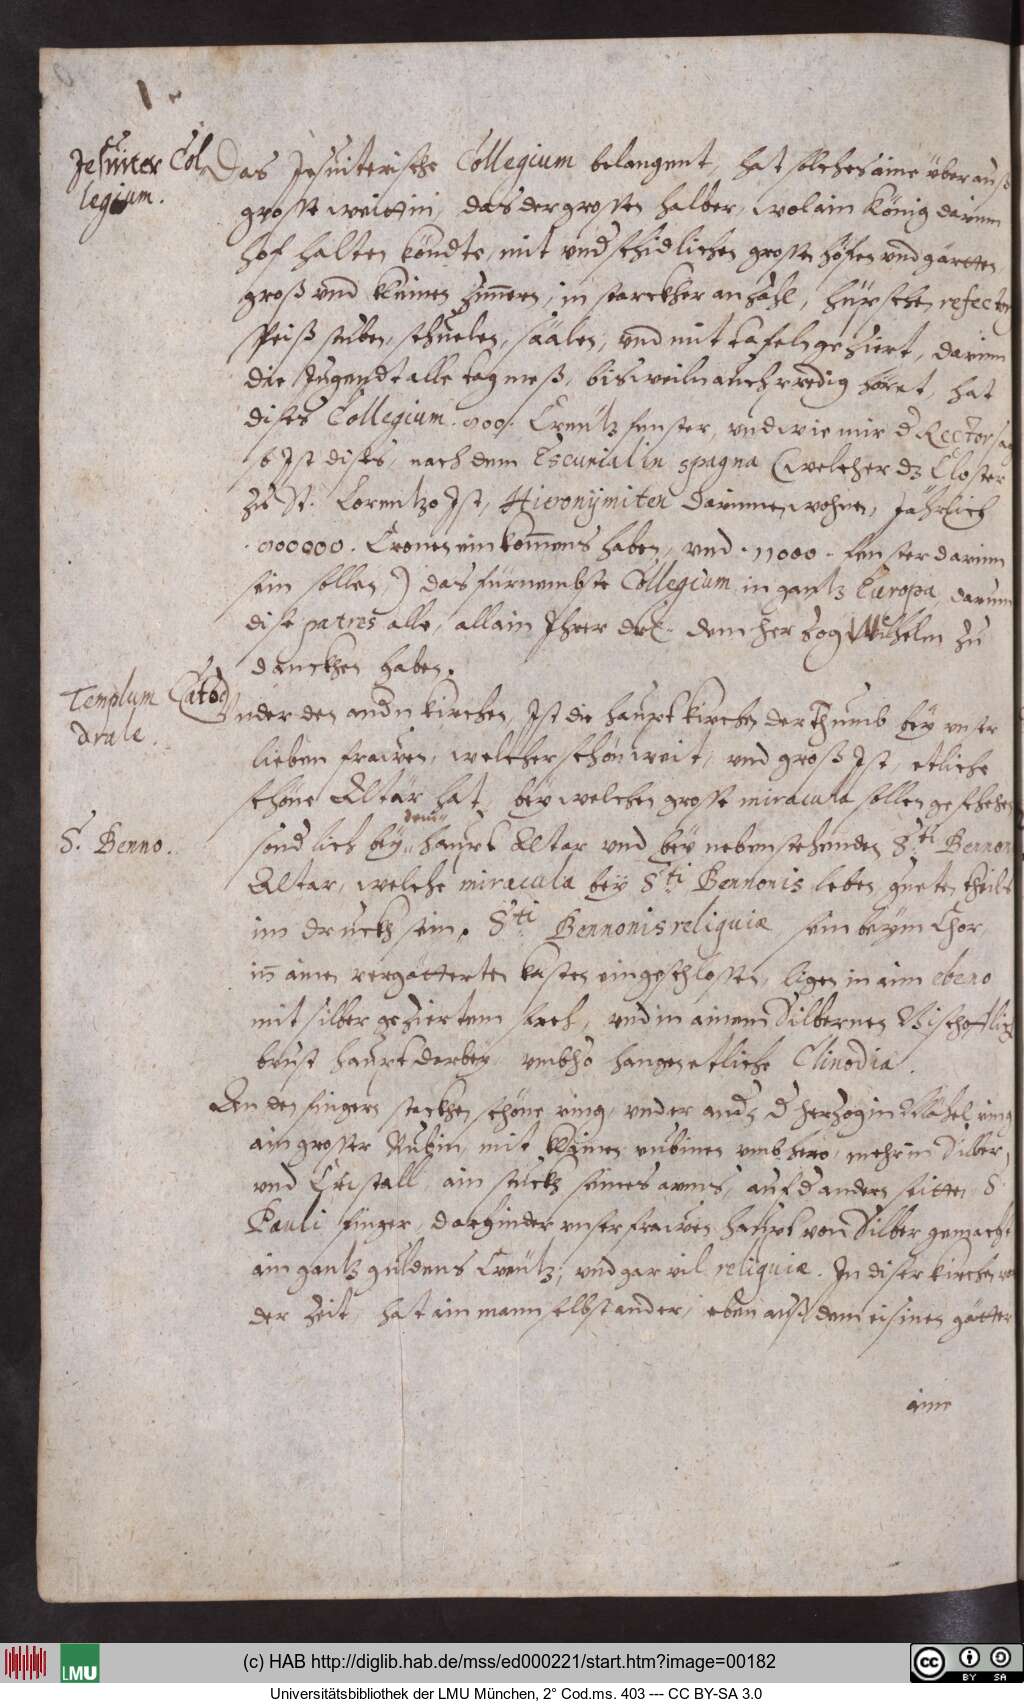 Jesuiter Col
legium.
Das Jesuiterische Collegium belangent, hat solches aine über auß
grosse weittin, das der grossen halber, wol ain König darinn
hof halten köndte, mit underschidlichen grossen höfen und gärtten
groß und kleinen Zimern, in starckher anzahl, hüpschen refector
Speiß stuben, schuelen, säälen, und mit tafeln geziert, darinn
die Jugendt alle tag meß, bisweiln auch predig höret, hat
dises Collegium . 900. Creütz fenster, und wie mir d Rector sa
Ist dises, nach dem Escurial in Spagna (welcher dz Closter
zu St. Lorentzo Ist, Hieronymiter darinnen wohnen, Jährlich
Cronen einkomens haben, und . 11000 . fenster darinn
sein sollen,) das fürnembste Collegium in gantz Europa, darum
dise patres alle, allain Ihrer dht. dem Herzog Wilhelm zu
danckhen haben.
Templum Cated
drale.
Under den andn kirchen, Ist die haupt kirchen der Thumb bey unser
lieben frawen, welcher schön weit, und groß Ist, etliche
schöne Altär hat, bey welchen grosse miracula sollen geschehen
S. Benno.
dem
sondlich bey haupt Altar und bey nebenstehenden Sti Bennon
Altar, welche miracula bey Sti Bennonis leben, gueten theils
im druckh sein. Sti Bennonis reliquiæ sein beym Chor
in ainen vergätterten kasten eingeschlossen, ligen in aim ebeno
mit silber geziertem sarch, und in ainem Silbernen Bischofflich
brust haupt darbey umbho hangen etliche Clinodia.
An den fingern steckhen schöne ring, under andn d herzogin Mähel ring
ain grosser Rubin, mit klainen rubinen umbhero, mehr in Silber,
und Cristall ain stückh seines arms, auf d andern seitten S.
Pauli finger, darhinder unser frawen haupt von Silber gemacht
ain gantz guldens Creütz, und gar vil reliquiæ. In diser kirchen
der Zeit, hat ain mann selbst ander, eben auß dem eisinen gätter
aine
(c) HAB http://diglib.hab.de/mss/ed000221/start.htm?image=00182
LMU
cc BY SA
Universitätsbibliothek der LMU München, 2° Cod.ms. 403 --- CC BY-SA 3.0